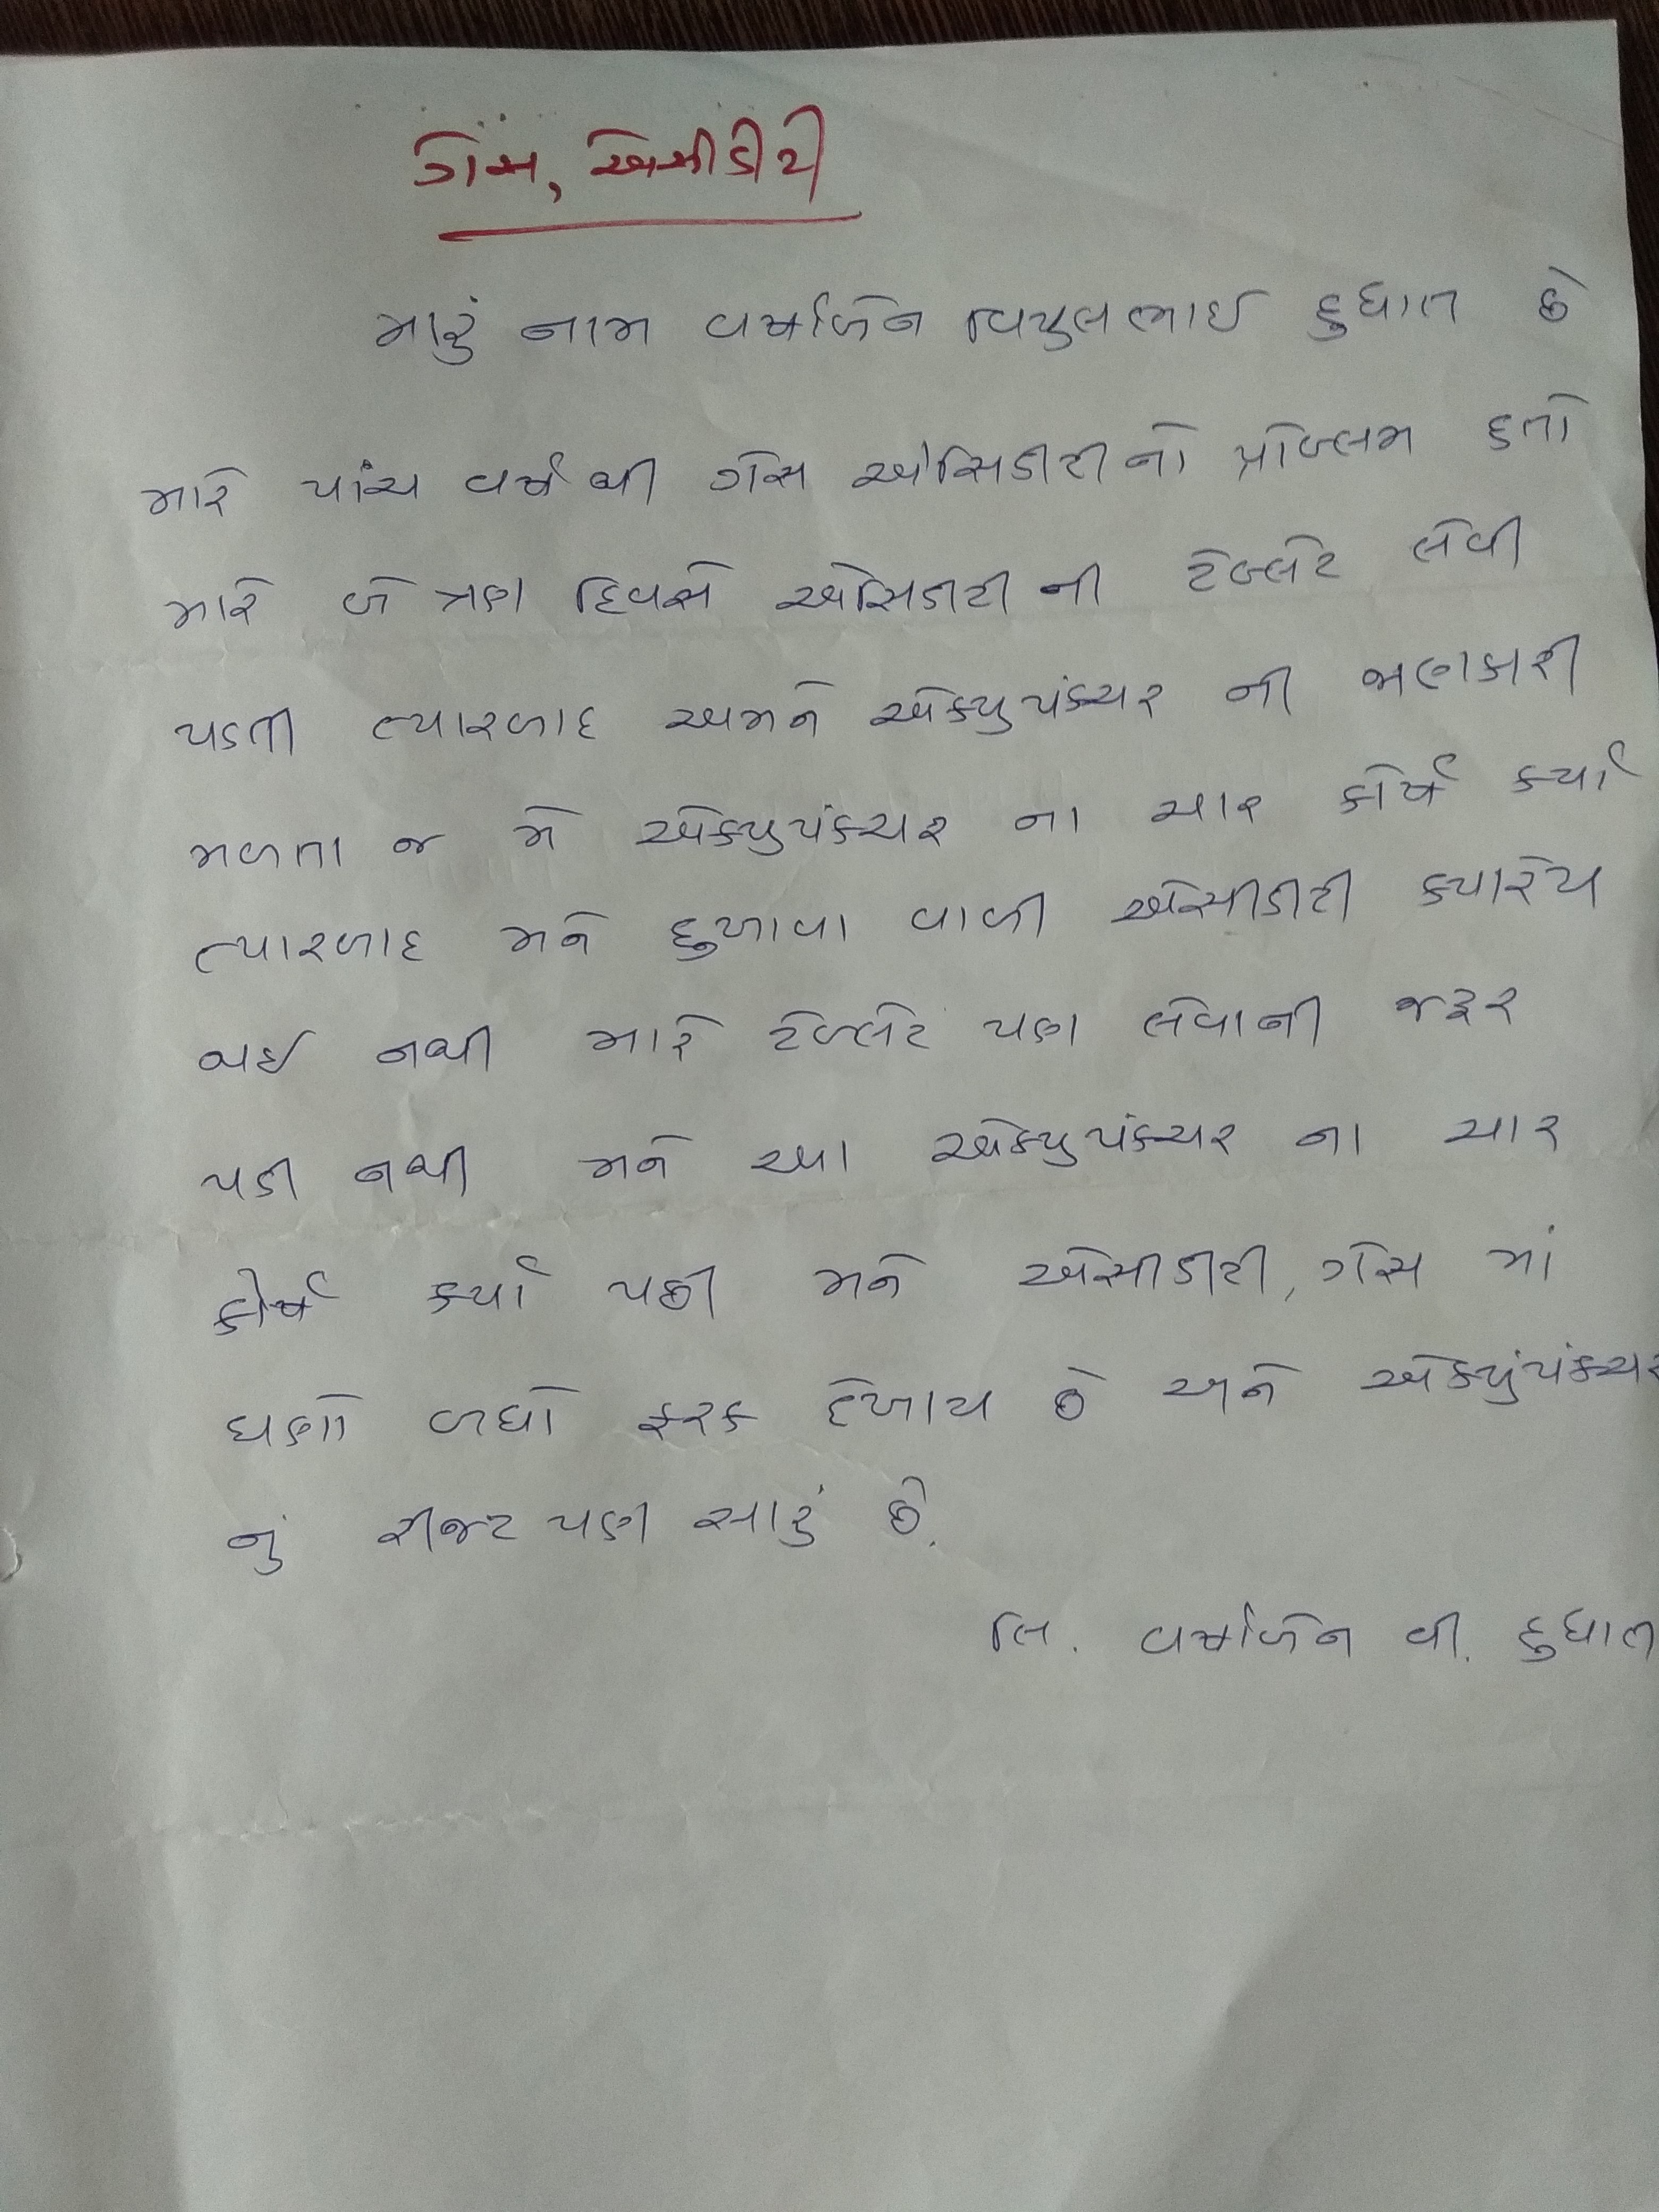 ગેસ, એસીડીટી
મારું નામ વર્ષાબેન વિપુલભાઈ દુધાત છે
મારે પાંચ વર્ષ થી ગેસ એસિડીટી નો પ્રોબ્લમ હતો
મારે બે ત્રણ દિવસે એસિડીટી ની ટેબ્લેટ લેવી
પડતી ત્યારબાદ અમને એક્યુપંકચર ની જાણકારી
મળતા જ મે એક્યુપંકચર ના ચાર કોર્ષ કર્યા
ત્યારબાદ મને દુખાવા વાળી એસીડીટી ક્યારેય
થઈ નથી મારે ટેબ્લેટ પણ લેવાની જરૂર
પડી નથી મને આ એક્યુપંકચર ના ચાર
કોર્ષ કર્યા પછી મને એસીડીટી, ગેસ માં
ઘણો બધો ફરક દેખાય છે અને એક્યુંપંકચર
નું રીજ્ટ પણ સારું છે.
લિ. વર્ષાબેન વી. દુધાત